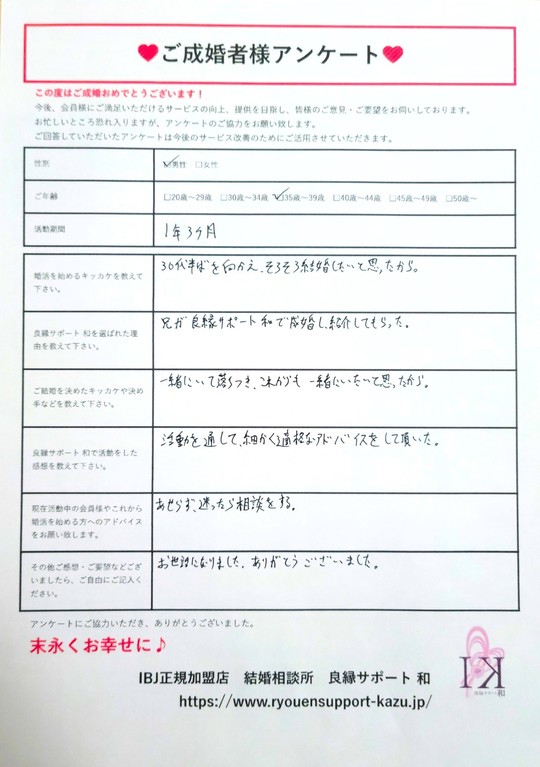 ♥ご成婚者様アンケート♥
この度はご成婚おめでとうございます！
今後、会員様にご満足いただけるサービスの向上、提供を目指し、皆様のご意見・ご要望をお伺いしております。
お忙しいところ恐れ入りますが、アンケートのご協力をお願い致します。
ご回答していただいたアンケートは今後のサービス改善のためにご活用させていただきます。
性別
☑男性 □女性
ご年齢
□20歳～29歳 □30歳～34歳 ☑35歳～39歳 □40歳～44歳 □45歳～49歳 □50歳～
活動期間
1年3ヶ月
婚活を始めるキッカケを教えて
下さい。
30代半ばを向かえ、そろそろ結婚したいと思ったから。
良縁サポート 和を選ばれた理
由を教えて下さい。
兄が良縁サポート和で成婚し、紹介してもらった。
ご結婚を決めたキッカケや決め
手などを教えて下さい。
一緒にいて落ちつき、これからも一緒にいたいと思ったから。
良縁サポート 和で活動をした
感想を教えて下さい。
活動を通して、細かく適格なアドバイスをして頂いた。
現在活動中の会員様やこれから
婚活を始める方へのアドバイス
をお願い致します。
あせらず、迷ったら相談をする。
その他ご感想・ご要望などござ
いましたら、ご自由にご記入く
ださい。
お世話になりました、ありがとうございました。
アンケートにご協力いただき、ありがとうございました。
末永くお幸せに♪
IBJ正規加盟店 結婚相談所 良縁サポート 和
https://www.ryouensupport-kazu.jp/
IK
良縁サポート 和